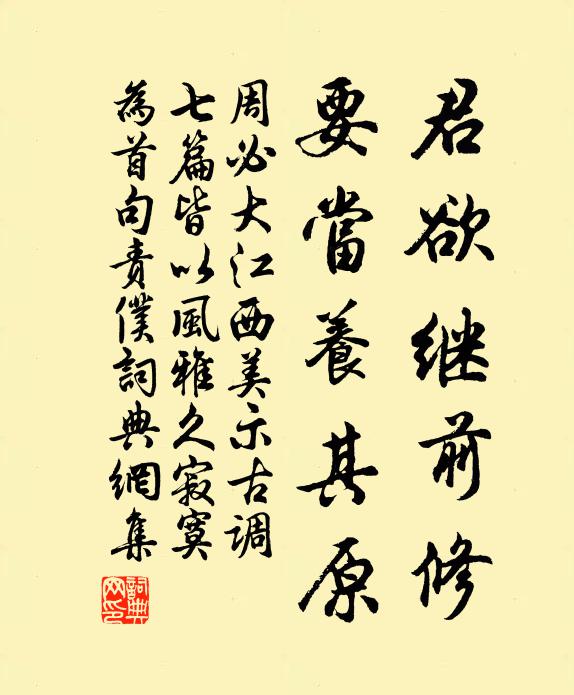 君欲继前修
要當養其原
周必大江西美示古调
七篇皆以風雅久寂寞
為首句責僕詞典網集
詞典
网印